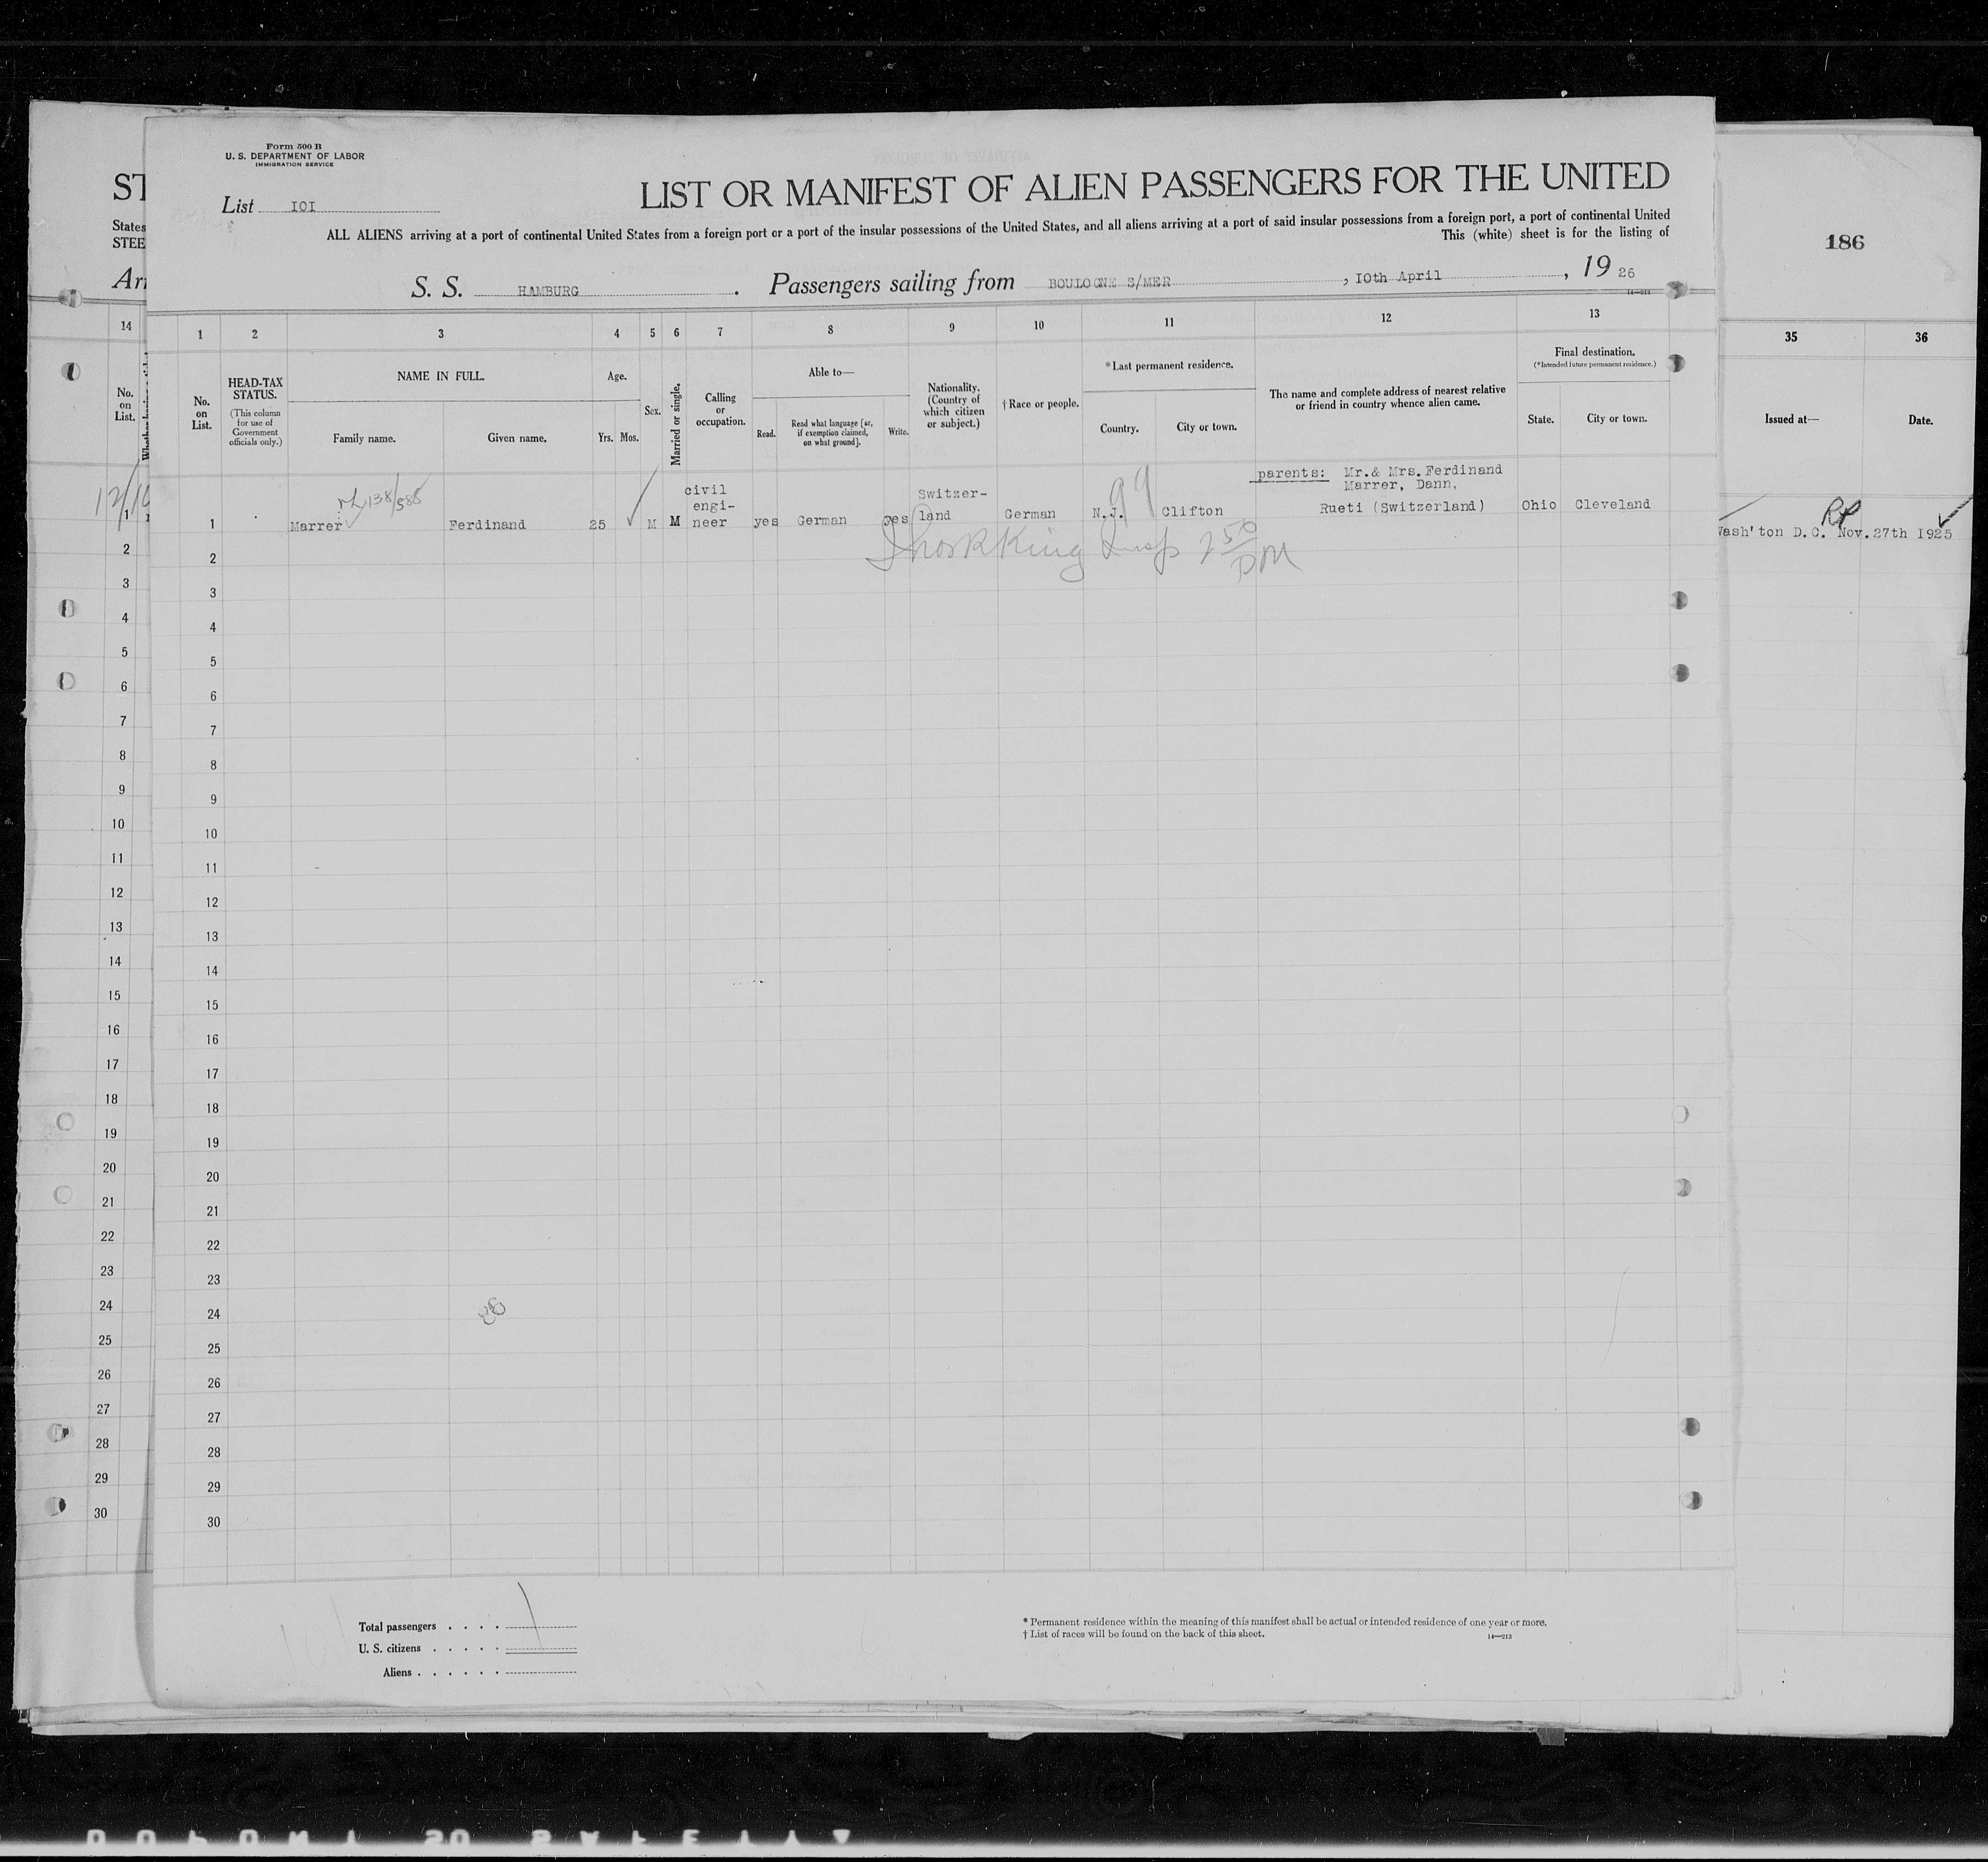 Form 500 B
U. S. DEPARTMENT OF LABOR
IMMIGRATION SERVICE
List IOI
LIST OR MANIFEST OF ALIEN PASSENGERS FOR THE UNITED
ALL ALIENS arriving at a port of continental United States from a foreign port or a port of the insular possessions of the United States, and all aliens arriving at a port of said insular possessions from a foreign port, a port of continental United
This (white) sheet is for the listing of
S. S. HAMBURG. Passengers sailing from BOULOGNE S/MER, IOth April, 19 26
ST
States
STEE
Arr
186
14
1 2 3 4 5 6 7 8 9 10 11 12 13
35 36
No. on List.
No. on List.
HEAD-TAX STATUS.
(This column for use of Government officials only.)
NAME IN FULL.
Family name. Given name.
Age.
Yrs. Mos.
Sex.
Married or single.
Calling or occupation.
Able to—
Read. Read what language [or, if exemption claimed, on what ground]. Write.
Nationality. (Country of which citizen or subject.)
† Race or people.
* Last permanent residence.
Country. City or town.
The name and complete address of nearest relative or friend in country whence alien came.
Final destination.
(*Intended future permanent residence.)
State. City or town.
Issued at— Date.
138/585
99
1 Marrer Ferdinand 25 M M civil engi-neer yes German yes Switzer-land German N.J. Clifton parents: Mr.& Mrs.Ferdinand Marrer, Dann, Rueti (Switzerland) Ohio Cleveland
Wash'ton D.C. Nov.27th I925
King Insp 2 50 PM
2
3
4
5
6
7
8
9
10
11
12
13
14
15
16
17
18
19
20
21
22
23
24
25
26
27
28
29
30
1
2
3
4
5
6
7
8
9
10
11
12
13
14
15
16
17
18
19
20
21
22
23
24
25
26
27
28
29
30
Total passengers . . . .
U. S. citizens . . . . .
Aliens . . . . . .
* Permanent residence within the meaning of this manifest shall be actual or intended residence of one year or more.
† List of races will be found on the back of this sheet.
14—213